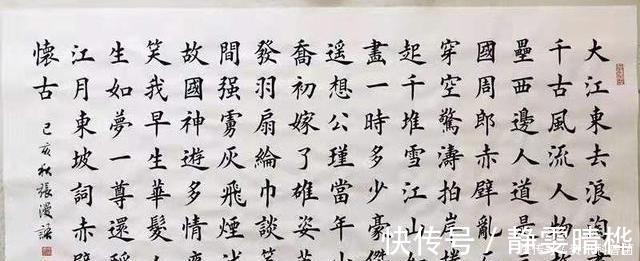 大江東去浪淘
千古風流人物
壘西邊人道是
國周郎赤壁亂
穿空驚濤拍岸
起千堆雪江山
畫一時多少豪傑
遥想公瑾當年
喬初嫁了雄姿
發羽扇綸巾談笑
間强虜灰飛煙
故國神遊多情
笑我早生華髮人
生如夢一尊還
江月東坡詞赤壁
懷古
己亥秋張漫
快传号 / 静雯晴桦